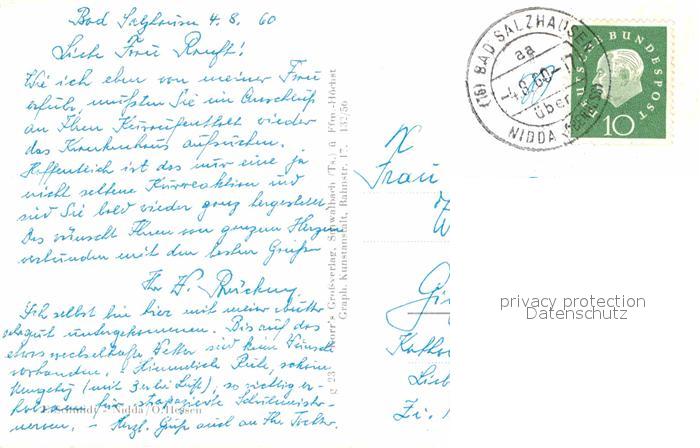 Bad Salzhausen 4.8.60
Liebe Frau Rauft!
Wie ich eben von meiner Frau
erfuhr, mußten Sie im Anschluß
an Ihren Kuraufenthalt wieder
das Krankenhaus aufsuchen.
Hoffentlich ist das nur eine ja
nicht seltene Kurreaktion und
sind Sie bald wieder ganz hergestellt.
Das wünscht Ihnen von ganzem Herzen
verbunden mit den besten Grüßen
Ihr
Ich selbst bin hier mit meiner Mutter
untergekommen. Bis auf das
etwas wechselhafte Wetter sind keine Wünsche
vorhanden. Himmlische Ruhe, schöne
Umgebung (mit 3erlei Luft), so richtig er-
holsam für strapazierte Schulmeister-
nerven. - Herzl. Gruß auch an Ihr Tochter.
Nidda/O. Hessen
Großverlag, Schwalbach (Ts.) ü. Ffm.-Höchst
Graph. Kunstanstalt, Bahnstr. 17, 132/56
(16) BAD SALZHAUSEN
aa
-4.8.60-
über
NIDDA
DEUTSCHE BUNDESPOST
10
Frau
privacy protection
Datenschutz